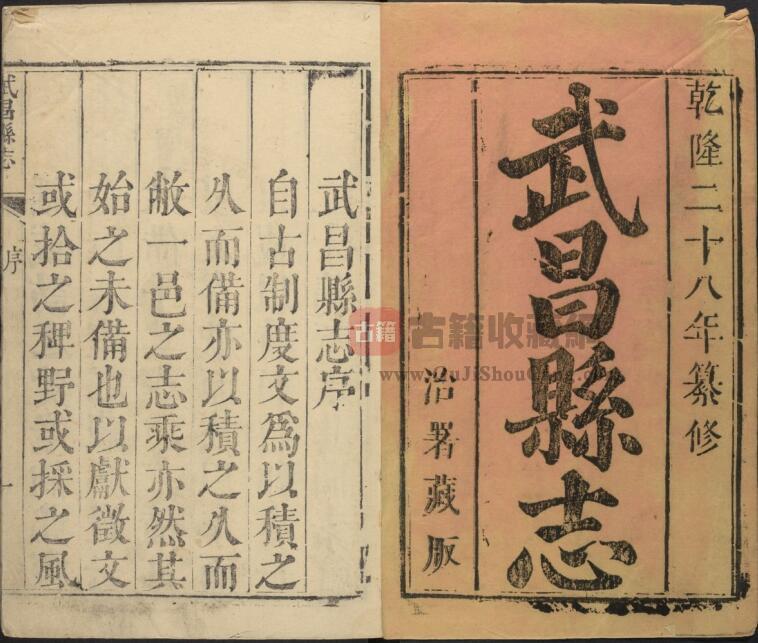 乾隆二十八年纂修
武昌縣志
治署藏版
武昌縣志序
自古制度文爲以積之
久而備亦以積之久而
敝一邑之志乘亦然其
始之未備也以獻徵文
或拾之稗野或採之風
武昌縣志
序
一
古籍
古籍收藏網
www.GuJiShouCang.com